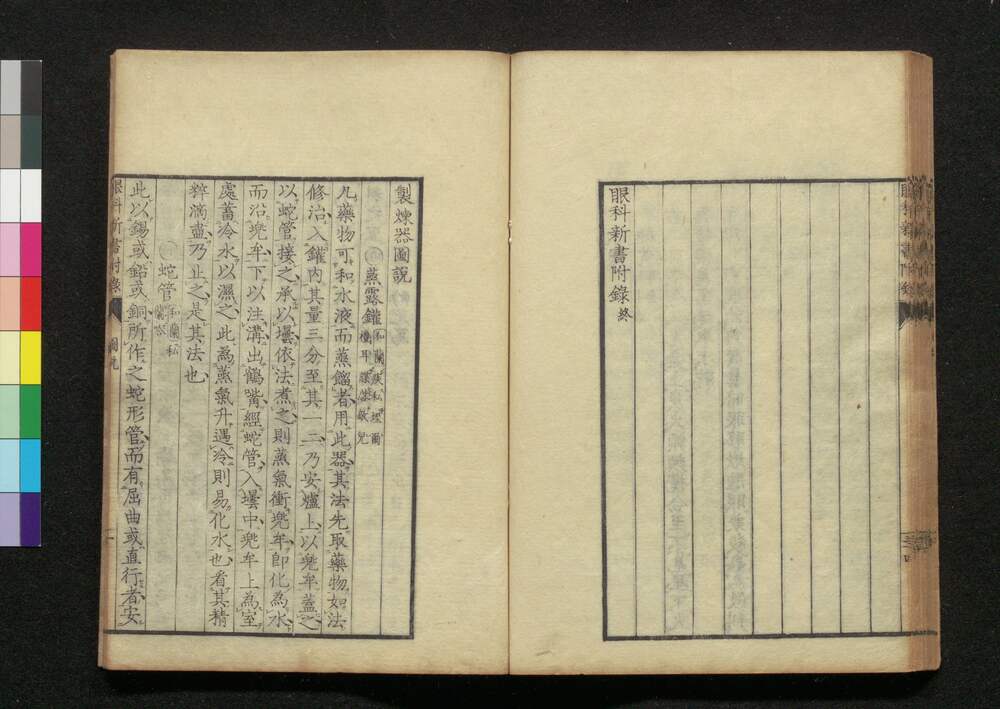 眼科新書附錄
眼科新書附錄終
製煉器圖說
蒸露鑵
凡藥物可和水液而蒸餾者用此器其法先取藥物如法
修治入鑵內其量三分至其一二乃安爐上以兜牟蓋之
以蛇管接之承以壜依法煮之則蒸氣衝兜牟卽化為水
而沿兜牟下以注溝出鶴嘴經蛇管入壜中兜牟上為室
處蓄冷水以濕之此為蒸氣升遇冷則易化水也看其精
粹滴盡乃止之是其法也
蛇管
此以錫或鉛或銅所作之蛇形管而有屈曲或直行者安
眼科新書附錄